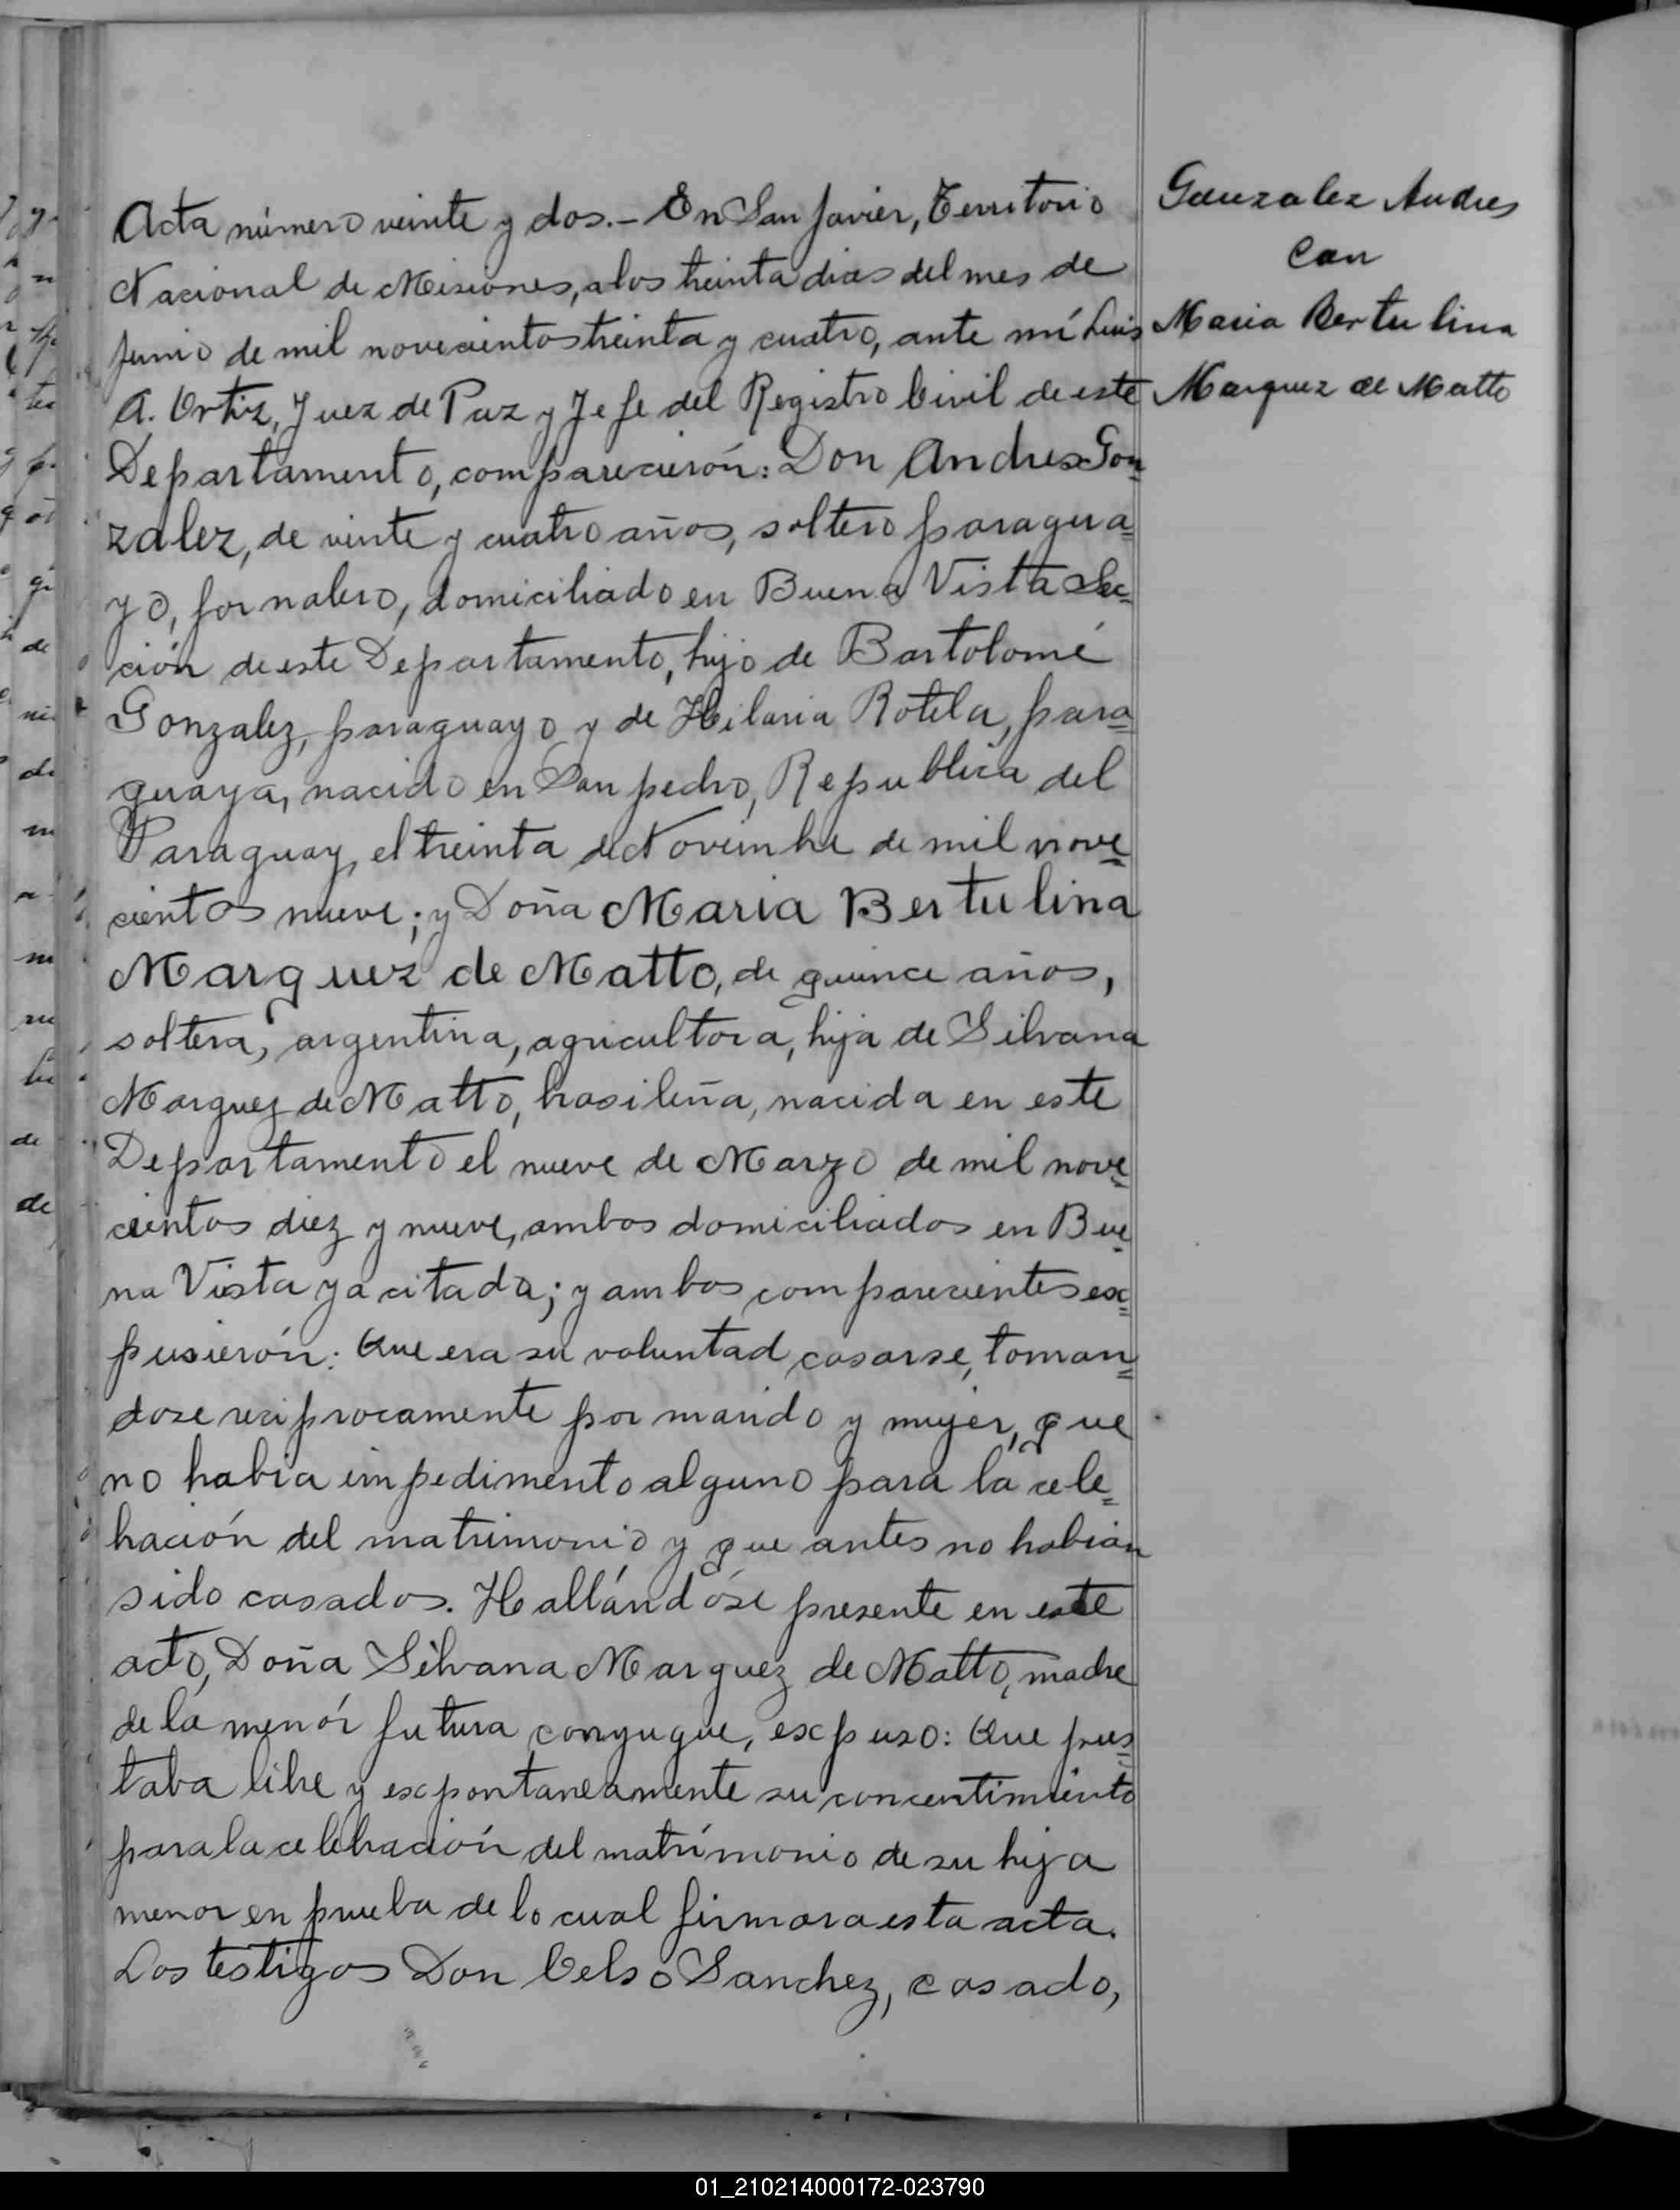 Acta número veinte y dos.- En San Javier, Territorio
Nacional de Misiones, a los treinta dias del mes de
Junio de mil novecientos treinta y cuatro, ante mí Luis
A. Ortiz, Juez de Paz y Jefe del Registro Civil de este
Departamento, comparecierón: Don Andres Gon=
zalez, de veinte y cuatro años, soltero paragua=
yo, jornalero, domiciliado en Buena Vista Sec=
ción de este Departamento, hijo de Bartolomé
Gonzalez, paraguayo y de Hilaria Rotela, para=
guaya, nacido en San pedro, Republica del
Paraguay, el treinta de Noviembre de mil nove=
cientos nueve; y Doña Maria Bertulina
Marquez de Matto, de quince años,
soltera, argentina, agricultora, hija de Silvana
Marquez de Matto, brasileña, nacida en este
Departamento el nueve de Marzo de mil nove=
cientos diez y nueve, ambos domiciliados en Bue=
na Vista ya citada; y ambos comparecientes ex=
pusierón: Que era su voluntad casarse, toman=
dose reciprocamente por marido y mujer, que
no habia impedimento alguno para la cele=
bración del matrimonio y que antes no habian
sido casados. Hallándóse presente en este
acto, Doña Silvana Marquez de Matto, madre
de la menór futura conyugue, expuso: Que pres=
taba libre y expontaneamente su concentimiento
para la celebración del matrimonio de su hija
menor en prueba de lo cual firmara esta acta.
Los testigos Don Celso Sanchez, casado,
Gonzalez Andres
Con
Maria Bertulina
Marquez de Matto
01_210214000172-023790